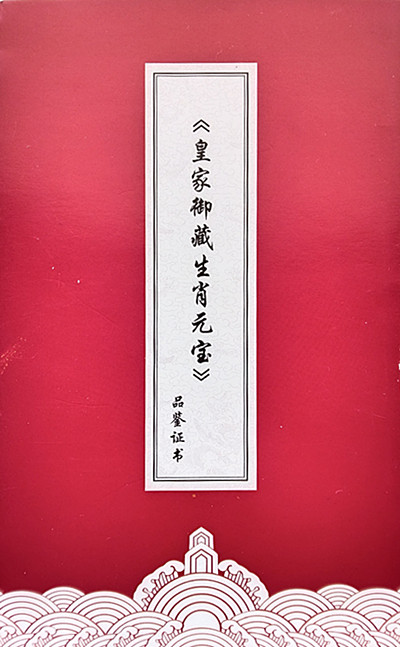 《皇家御藏生肖元宝》
品鉴证书